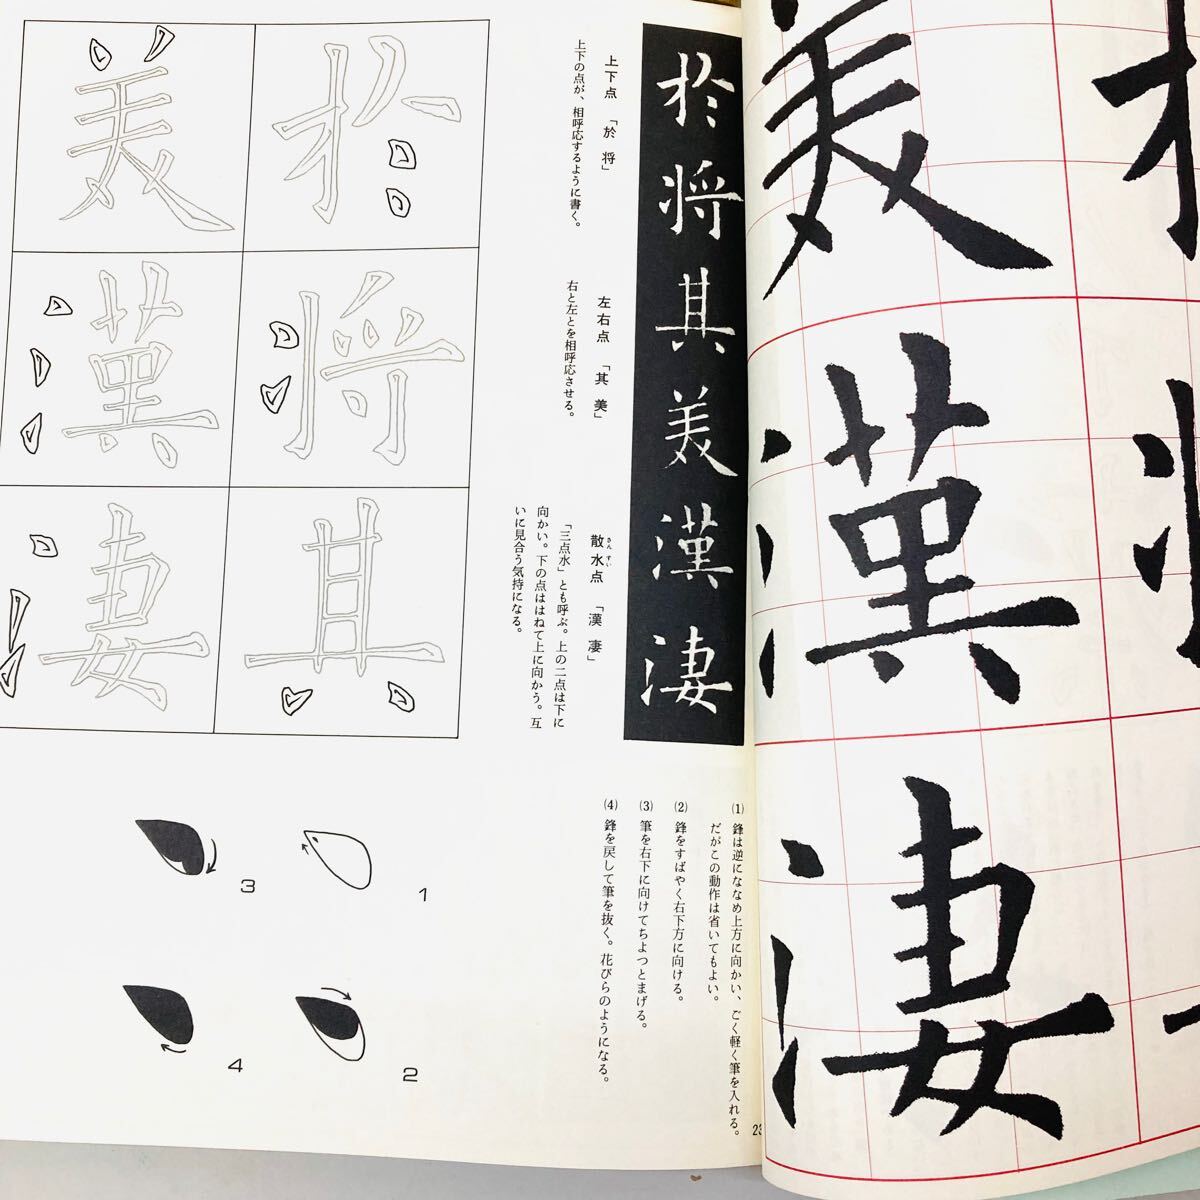 美
漢
凄
於
将
其
美
漢
凄
上下点 「於 将」
上下の点が、相呼応するように書く。
左右点 「其 美」
右と左とを相呼応させる。
散水点 「漢 凄」
さんすい
「三点水」とも呼ぶ。上の二点は下に
向かい。下の点ははねて上に向かう。互
いに見合う気持になる。
於
将
其
美
漢
凄
(1) 鋒は逆にななめ上方に向かい、ごく軽く筆を入れる。
だがこの動作は省いてもよい。
(2) 鋒をすばやく右下方に向ける。
(3) 筆を右下に向けてちよつとまげる。
(4) 鋒を戻して筆を抜く。花びらのようになる。
1
2
3
4
23